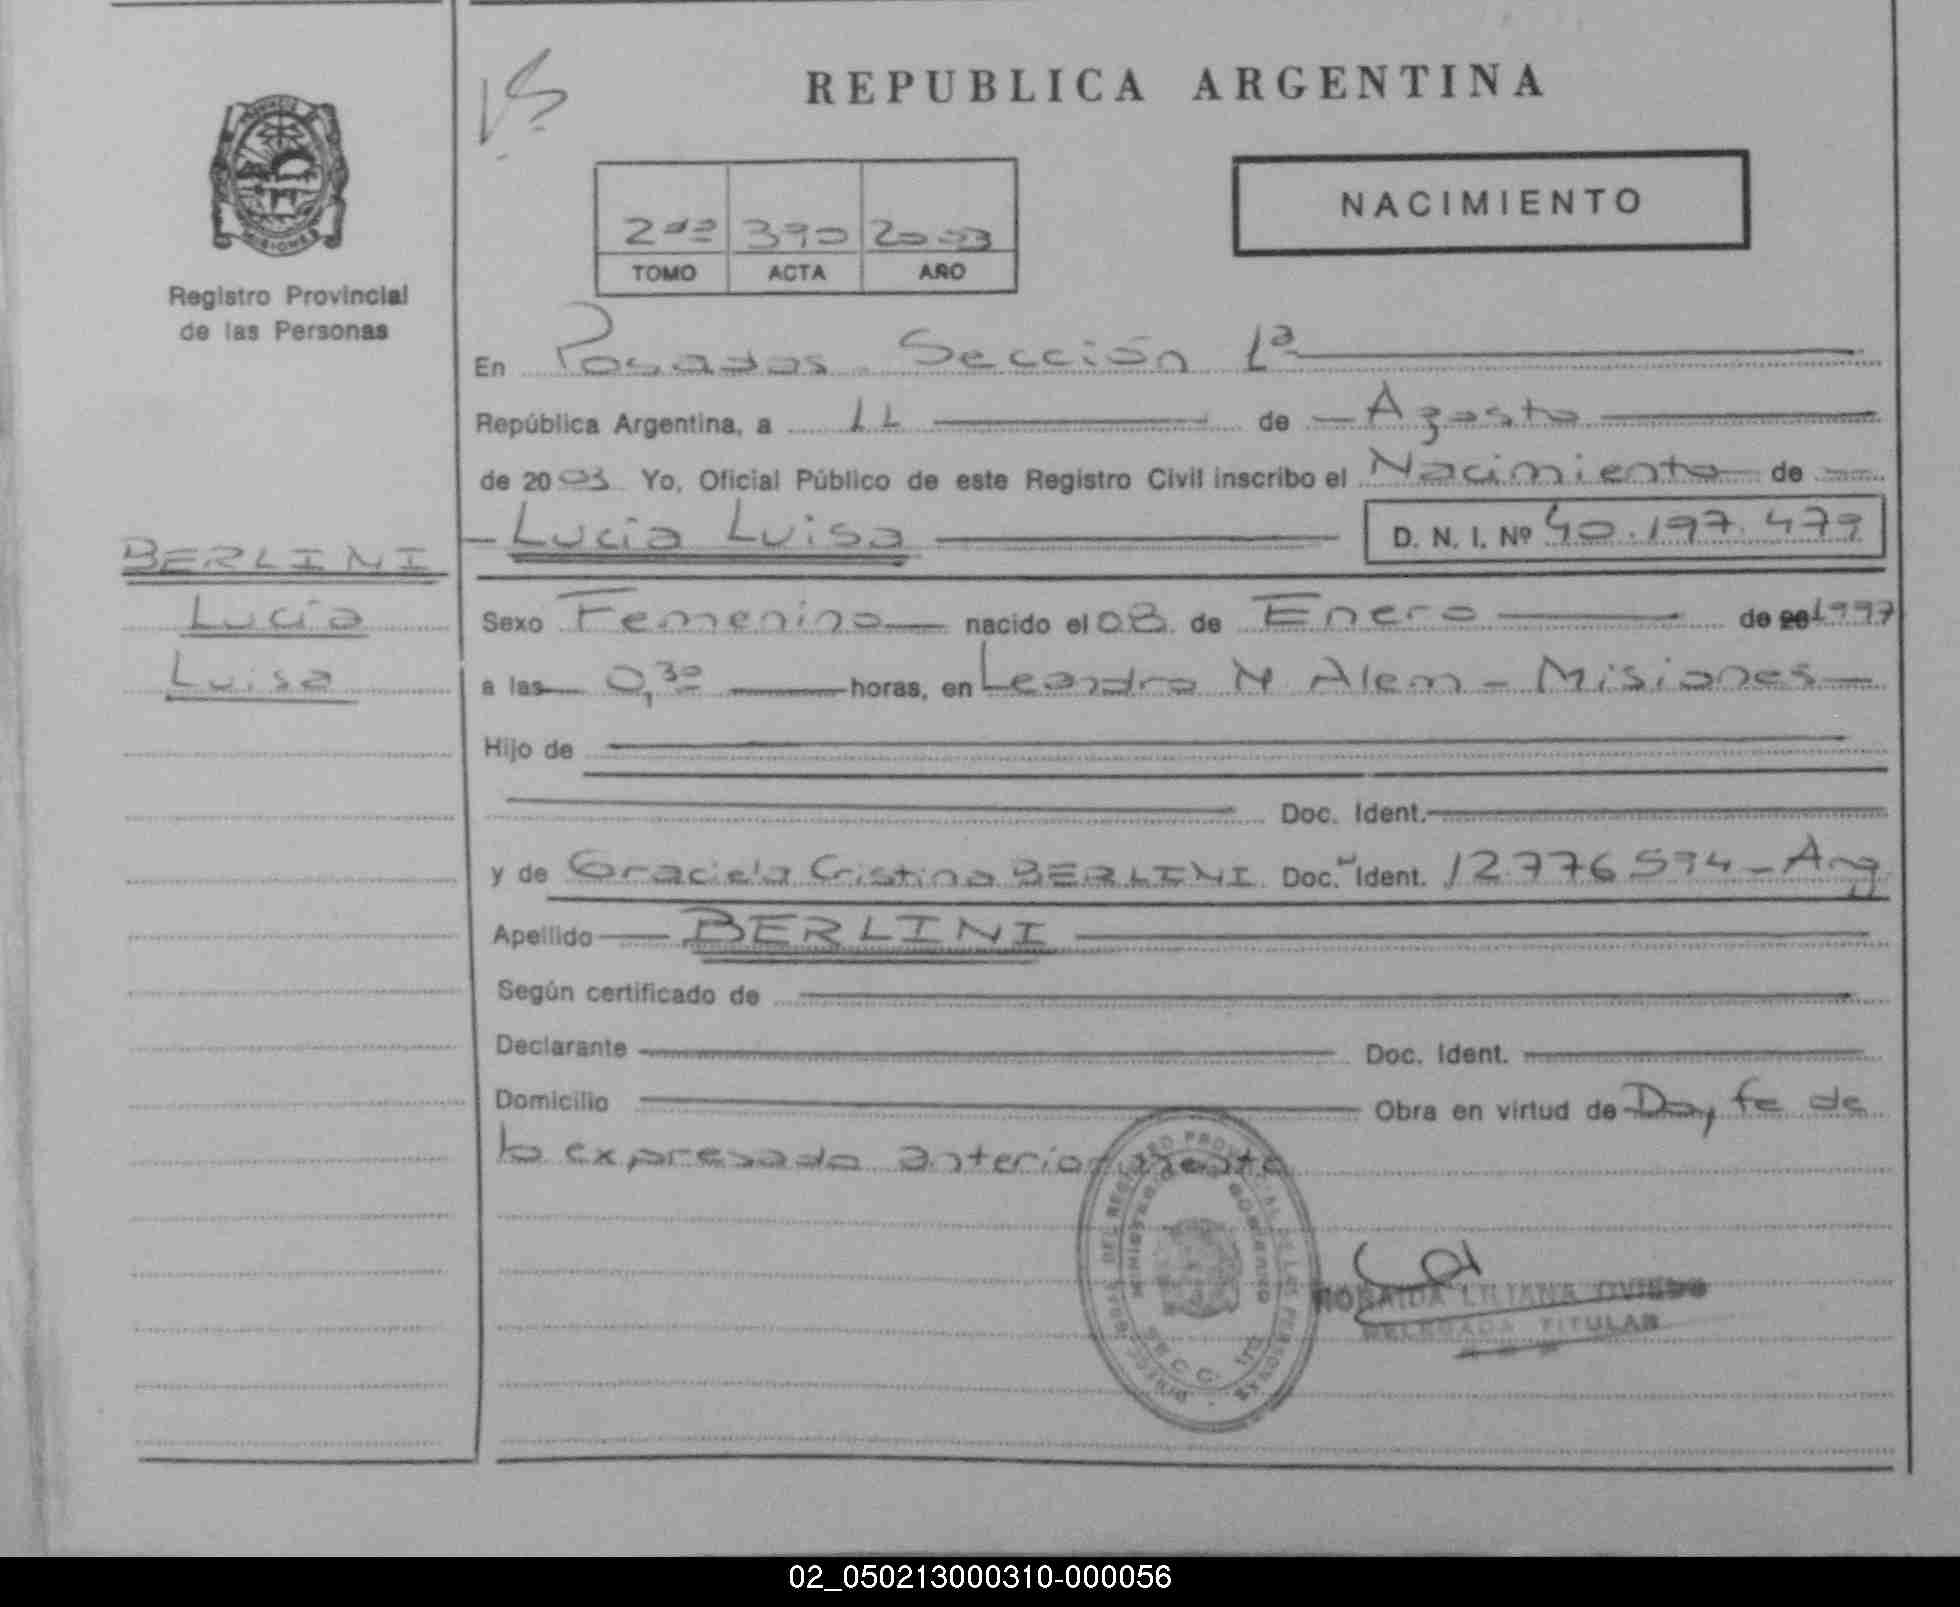 REPUBLICA ARGENTINA
NACIMIENTO
MISIONES
Registro Provincial
de las Personas
2do 390 2003
TOMO ACTA AÑO
En Posadas Sección 1ª
República Argentina, a 11 de Agosto
de 2003 Yo, Oficial Público de este Registro Civil inscribo el Nacimiento de
Lucia Luisa D. N. I. Nº 40.197.479
BERLINI
Lucía
Luisa
Sexo Femenino nacido el 08 de Enero de 20 1997
a las 0,30 horas, en Leandro N Alem - Misiones
Hijo de
Doc. Ident.
y de Graciela Cristina BERLINI Doc. Ident. 12.776.594 - Arg
Apellido BERLINI
Según certificado de
Declarante Doc. Ident.
Domicilio Obra en virtud de Doy fe de
lo expresado anteriormente
MINISTERIO DE GOBIERNO
ROSAIDA LILIANA OVIEDO
DELEGADA TITULAR
02_050213000310-000056